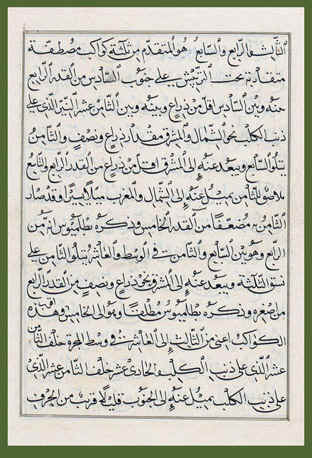 الثالث فالرابع والسابع هو المتقدم من ثلثة كواكب مصطفة
متقاربة تحت على جنوب السادس من القدر الرابع
وبين السادس اقل من ذراع وبينه وبين الثامن عشر النير الذي على
ذنب الكلب نحو الشمال والمشرق مقدار ذراع ونصف والثامن
يتلو السابع ويبعد عنه إلى المشرق اقل من ذراع من القدر الرابع التاسع
يتلو الثامن يميل عنه إلى الشمال والمغرب ميلا يسيرا وقد صار
الثامن به مضعفا من القدر الخامس وذكره بطلميوس انه من
الرابع وهو بين السابع والثامن في الوسط والعاشر يتلو الثامن على
نسق الثلثة ويبعد عنه إلى المشرق نحو ذراع ونصف من القدر الرابع
من صغره وذكره بطلميوس مطلقا وهو إلى الخامس اقرب وهذه
الكواكب اعنى من الثالث إلى العاشر في وسط المجرة خلف الثامن
عشر الذي على ذنب الكلب والحادى عشر خلف الثامن عشر الذي
على ذنب الكلب يميل عنه إلى الجنوب قليلا قريب من الحرف